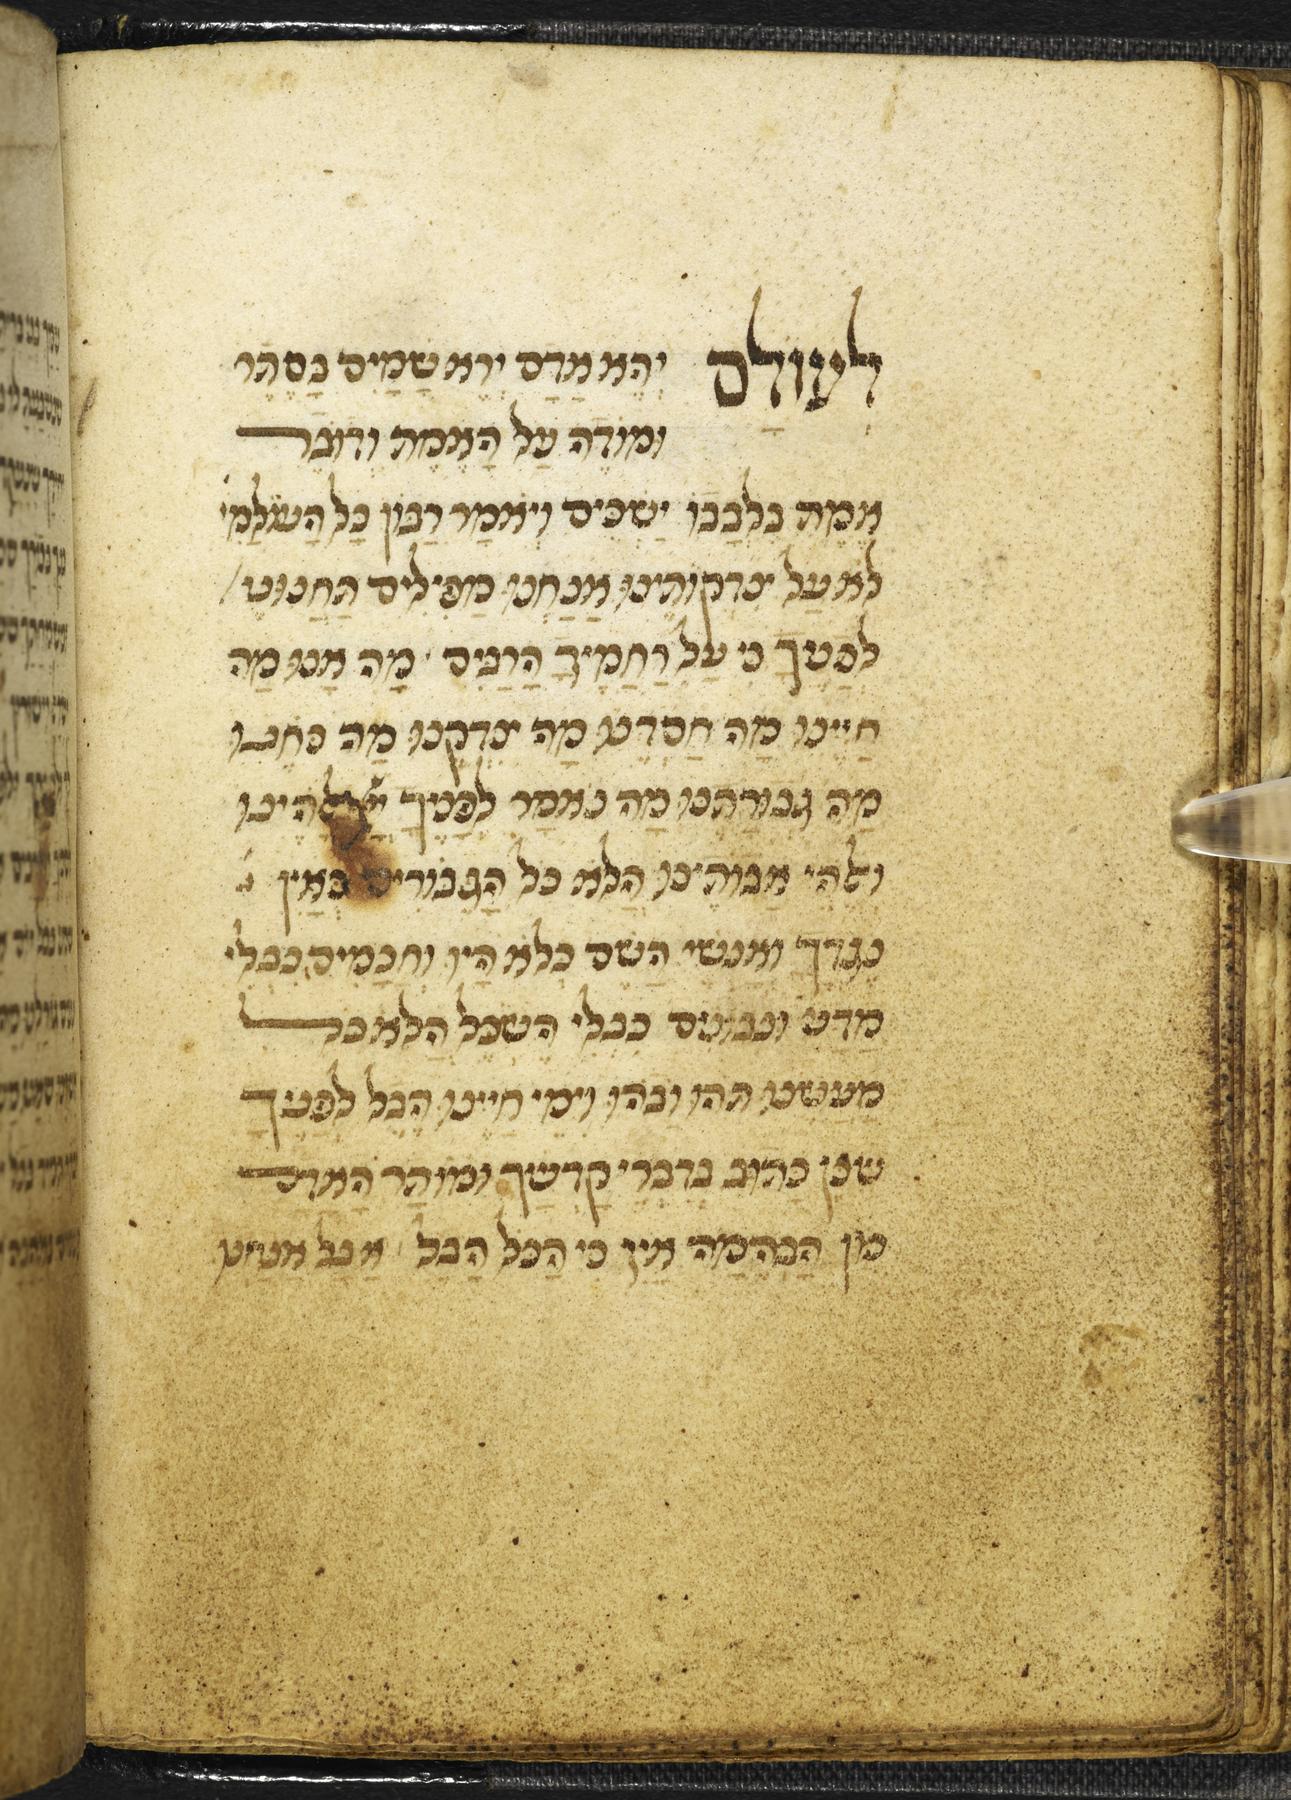 לעולם יְהֵא אָדָם יְרֵא שָׁמַיִם בַּסֵּתֶר
וּמוֹדֶה עַל הָאֱמֶת וְדוֹבֵר
אֱמֶת בִּלְבָבוֹ יַשְׁכִּים וְיֹאמַר רִבּוֹן כָּל הָעוֹלָמִי׳
לֹא עַל צִדְקוֹתֵינוּ אֲנַחְנוּ מַפִּילִים תַּחֲנוּנֵינוּ
לְפָנֶיךָ כִּי עַל רַחֲמֶיךָ הָרַבִּים · מָה אָנוּ מַה
חַיֵּינוּ מָה חַסְדֵּנוּ מָה צִדְקֵנוּ מַה כֹּחֵנוּ
מַה גְּבוּרָתֵנוּ מַה נֹּאמַר לְפָנֶיךָ אֱלֹהֵינוּ
ואלהי אֲבוֹתֵינוּ הֲלֹא כָּל הַגִּבּוֹרִים כְּאַיִן
נֶגְדֶּךָ וְאַנְשֵׁי הַשֵּׁם כְּלֹא הָיוּ וַחֲכָמִים כִּבְלִי
מַדָּע וּנְבוֹנִים כִּבְלִי הַשְׂכֵּל הֲלֹא כָּל
מַעֲשֵׂנוּ תֹּהוּ וָבֹהוּ וִימֵי חַיֵּינוּ הֶבֶל לְפָנֶיךָ
שֶׁכֵּן כָּתוּב בְּדִבְרֵי קָדְשֶׁךָ וּמוֹתַר הָאָדָם
מִן הַבְּהֵמָה אַיִן כִּי הַכֹּל הָבֶל · אֲבָל אָנוּ